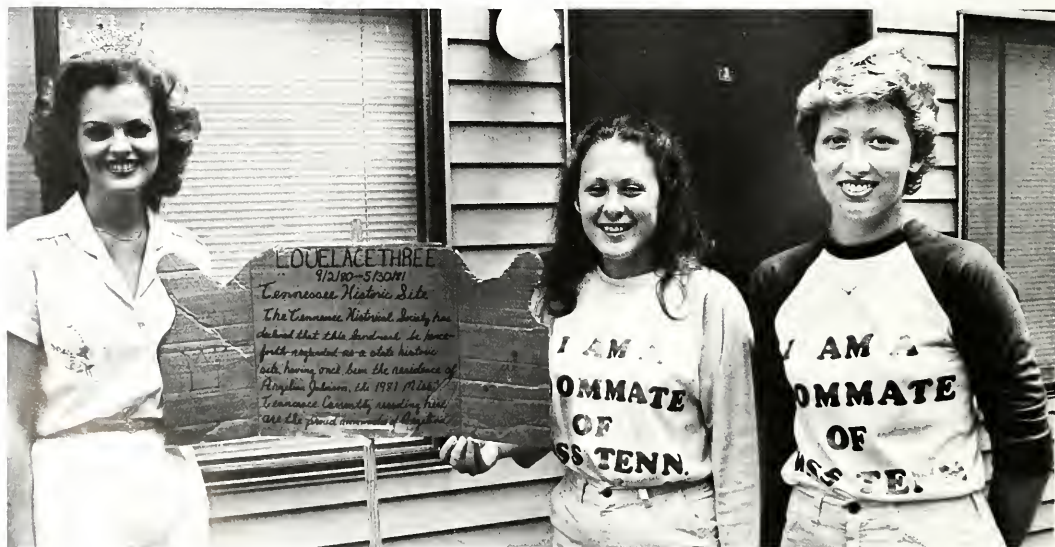 LOVELACE THREE
9/2/80-5/30/81
Tennessee Historic Site
The Tennessee Historical Society has
declared that this landmark be hence-
forth regarded as a state historic
site, having once been the residence of
Angelina Johnson, the 1981 Miss
Tennessee. Currently residing here
are the proud roommates of Angelina
I AM A
OMMATE
OF
SS TENN.
I AM A
OMMATE
OF
ISS TENN